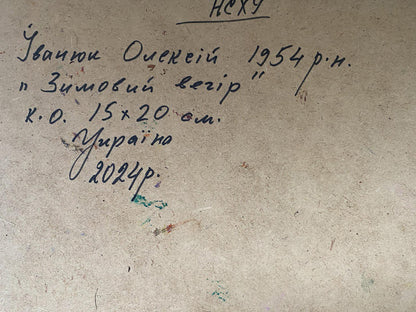 НСХУ
Іванюк Олексій 1954 р.н.
"Зимовий вечір"
к.о. 15×20 см.
Україна
2024р.